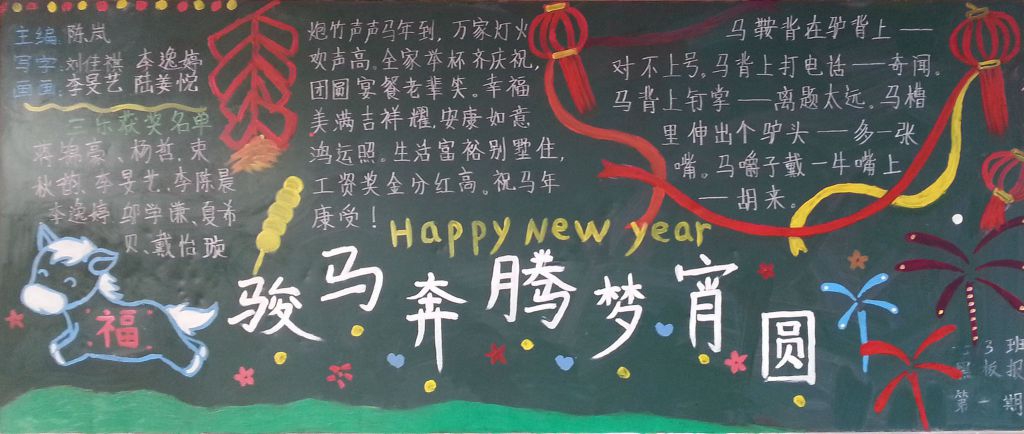 主编:陈岚
写字:刘佳祺 李逸婷
画画:李旻艺 陆姜悦
三乐获奖名单
蒋锦豪、杨哲、束
秋懿、李旻艺、李陈晨
李逸婷、邬学谦、夏希
贝、戴怡璇
炮竹声声马年到,万家灯火
欢声高。全家举杯齐庆祝,
团圆宴餐老辈笑。幸福
美满吉祥耀,安康如意
鸿运照。生活富裕别墅住,
工资奖金分红高。祝马年
康受!
马鞍背在驴背上——
对不上号。马背上打电话——奇闻。
马背上钉掌——离题太远。马槽
里伸出个驴头——多一张
嘴。马嚼子戴一牛嘴上
——胡来。
Happy New year
骏马奔腾梦宵圆
福
3班
黑板报
第一期